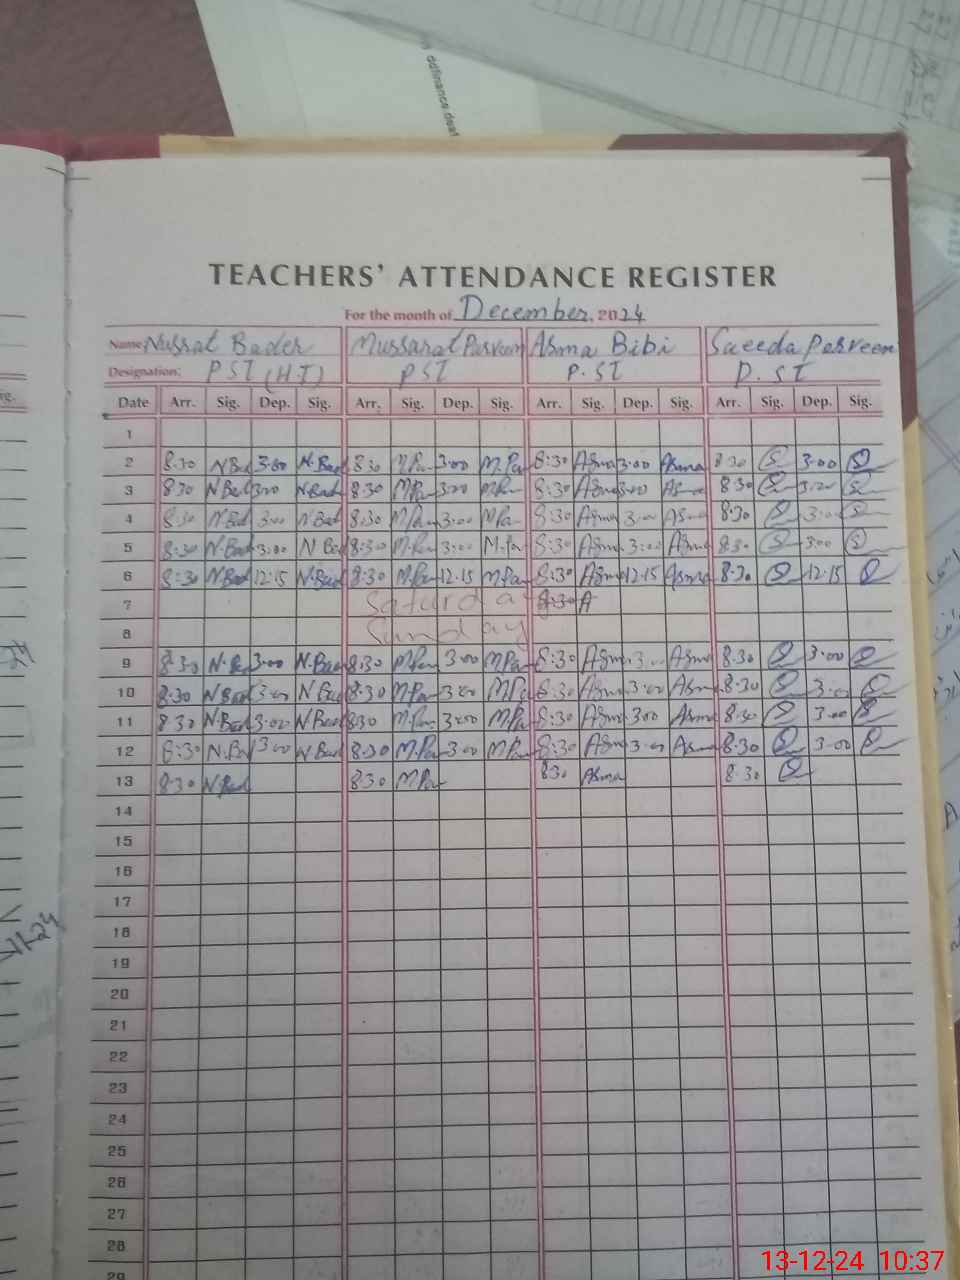 ddfinance.deaf
TEACHERS' ATTENDANCE REGISTER
For the month of December, 2024
Name: Nussrat Bader Mussarat Parveen Asma Bibi Saeeda Parveen
Designation: PST (H.T) PST P.ST P.ST
Date Arr. Sig. Dep. Sig. Arr. Sig. Dep. Sig. Arr. Sig. Dep. Sig. Arr. Sig. Dep. Sig.
1
2 8:30 N Bad 3:00 N.Bad 8:30 M.Par 3:00 M.Par 8:30 Asma 3:00 Asma 8:30 S 3:00 S
3 8:30 N Bad 3:00 N Bad 8:30 M.Par 3:00 M.Par 8:30 Asma 3:00 Asma 8:30 S 3:00 S
4 8:30 N.Bad 3:00 N Bad 8:30 M.Par 3:00 M.Par 8:30 Asma 3:00 Asma 8:30 S 3:00 S
5 8:30 N.Bad 3:00 N Bad 8:30 M.Par 3:00 M.Par 8:30 Asma 3:00 Asma 8:30 S 3:00 S
6 8:30 N.Bad 12:15 N.Bad 8:30 M.Par 12:15 M.Par 8:30 Asma 12:15 Asma 8:30 S 12:15 S
7 Saturda 8:30 A
8 Sunday
9 8:30 N.Bad 3:00 N.Bad 8:30 M.Par 3:00 M.Par 8:30 Asma 3:00 Asma 8:30 S 3:00 S
10 8:30 N Bad 3:00 N Bad 8:30 M.Par 3:00 M.Par 8:30 Asma 3:00 Asma 8:30 S 3:00 S
11 8:30 N.Bad 3:00 N Bad 8:30 M.Par 3:00 M.Par 8:30 Asma 3:00 Asma 8:30 S 3:00 S
12 8:30 N.Bad 3:00 N Bad 8:30 M.Par 3:00 M.Par 8:30 Asma 3:00 Asma 8:30 S 3:00 S
13 8:30 N.Bad 8:30 M.Par 8:30 Asma 8:30 S
14
15
16
17
18
19
20
21
22
23
24
25
26
27
28
29
13-12-24 10:37